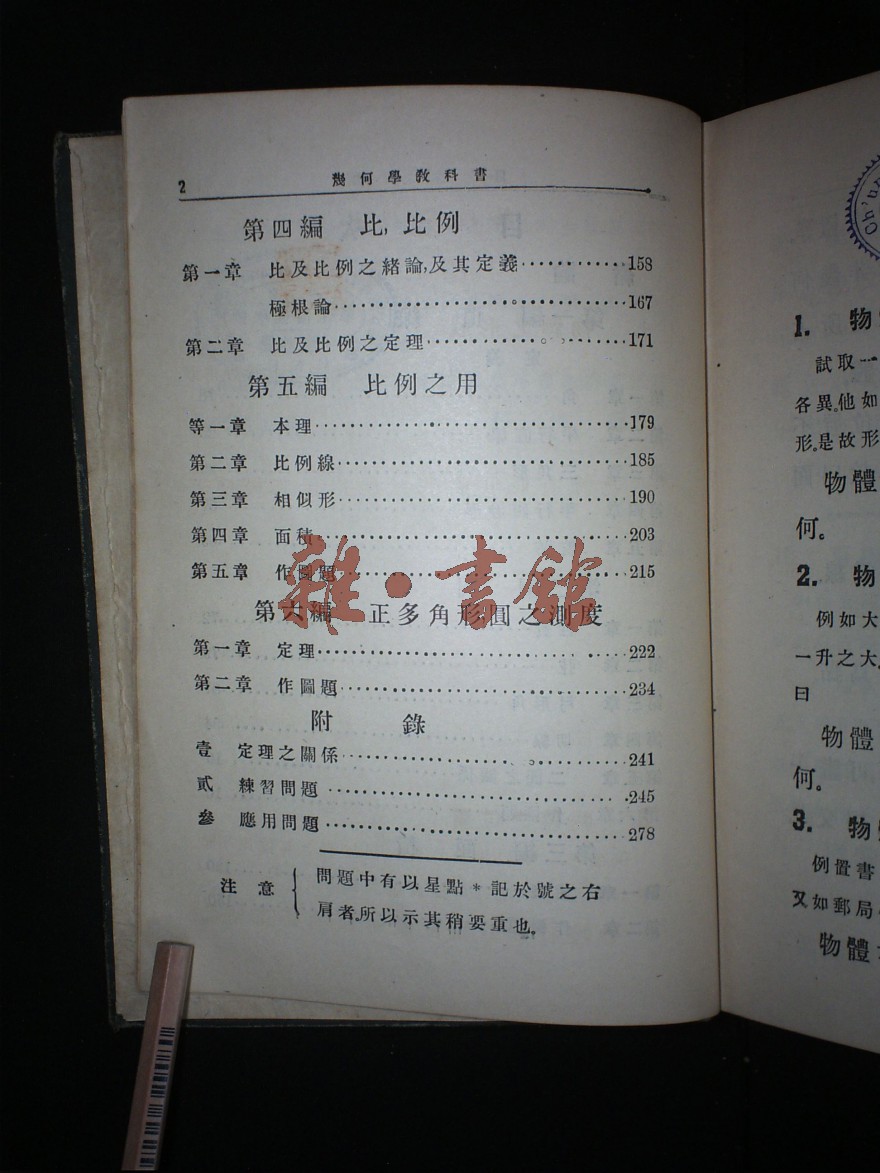 2 幾何學教科書
第四編 比,比例
第一章 比及比例之緒論,及其定義············158
極根論··························167
第二章 比及比例之定理··················171
第五編 比例之用
等一章 本理··························179
第二章 比例線························185
第三章 相似形························190
第四章 面積··························203
第五章 作圖題························215
雜·書館
第六編 正多角形圓之測度
第一章 定理··························222
第二章 作圖題························234
附 錄
壹 定理之關係························241
貳 練習問題··························245
參 應用問題··························278
注意 問題中有以星點*記於號之右
肩者。所以示其稍要重也。
Oh'un
1. 物
試取一
各異。他如
形。是故形
物體
何。
2. 物
例如大
一升之大
曰
物體
何。
3. 物
例置書
又如郵局
物體